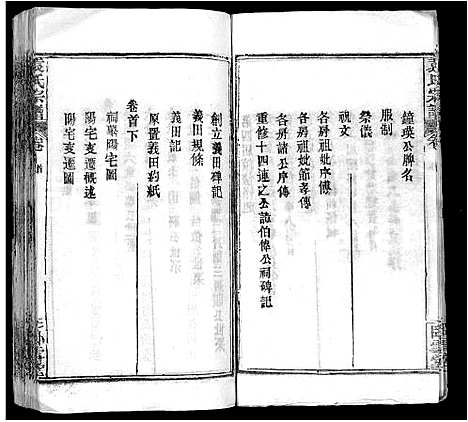 鐘瑛公牌名
服制
祭文
祭儀
各房祖妣序傳
各房祖妣節孝傳
各房諸公序傳
重修十四連之公諱伯偉公祠碑記
創立義田碑記
義田規條
義田記
原置義田約紙
卷首下
祠墓陽宅圖
陽宅支遷概述
陽宅支遷圖
氏宗譜
卷